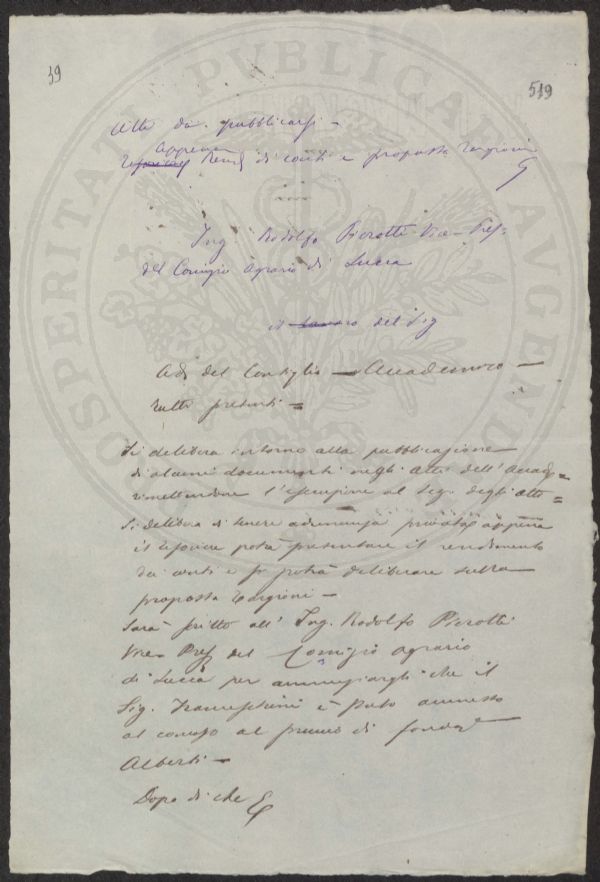 39
519
PROSPERITATI PUBLICAE AUGENDAE
Atti da pubblicarsi –
appena
Rend di conti e proposta Targioni
Ing Rodolfo Pierotti Vice–Pres.
del Comizio Agrario di Lucca
il del Sig
Adz del Consiglio – Accademico –
tutti presenti =
Si delibera intorno alla pubblicazione
di alcuni documenti negli atti dell'Accad=
rimettendone l'esecuzione al Seg. degli atti =
Si delibera di tenere adunanza privata appena
il tesoriere potrà presentare il rendimento
dei conti e si potrà deliberare sulla
proposta Targioni –
Sarà scritto all' Ing. Rodolfo Pierotti
Vice Pres del Comizio Agrario
di Lucca per annunziargli che il
Sig. è stato ammesso
al conc. al premio di fondaz
Alberti –
Dopo di che